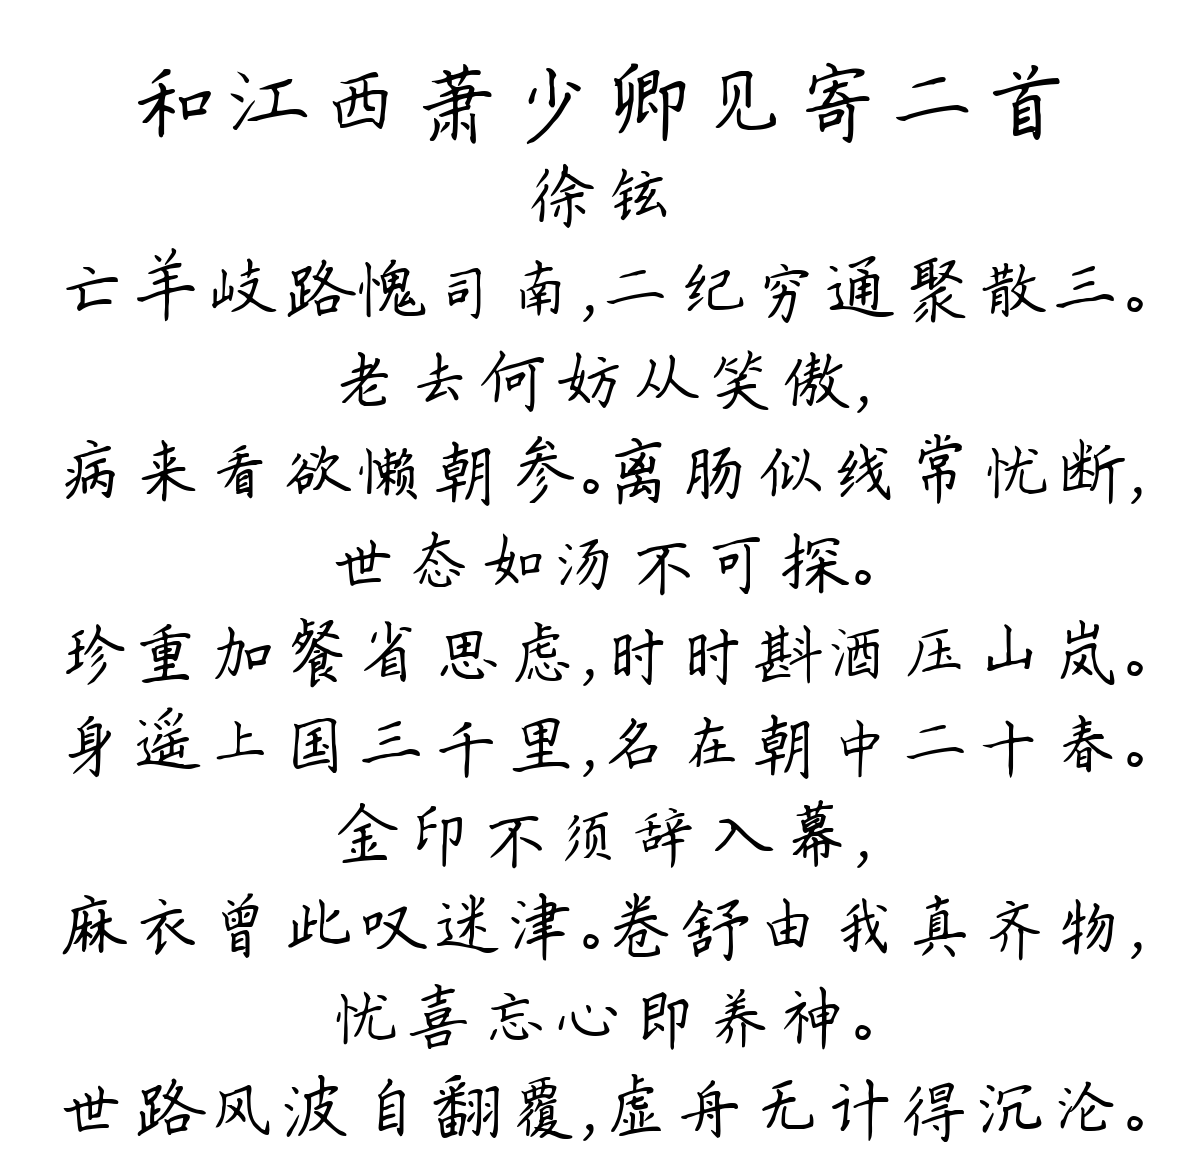 和江西萧少卿见寄二首
徐铉
亡羊岐路愧司南,二纪穷通聚散三。
老去何妨从笑傲,
病来看欲懒朝参。离肠似线常忧断,
世态如汤不可探。
珍重加餐省思虑,时时斟酒压山岚。
身遥上国三千里,名在朝中二十春。
金印不须辞入幕,
麻衣曾此叹迷津。卷舒由我真齐物,
忧喜忘心即养神。
世路风波自翻覆,虚舟无计得沉沦。